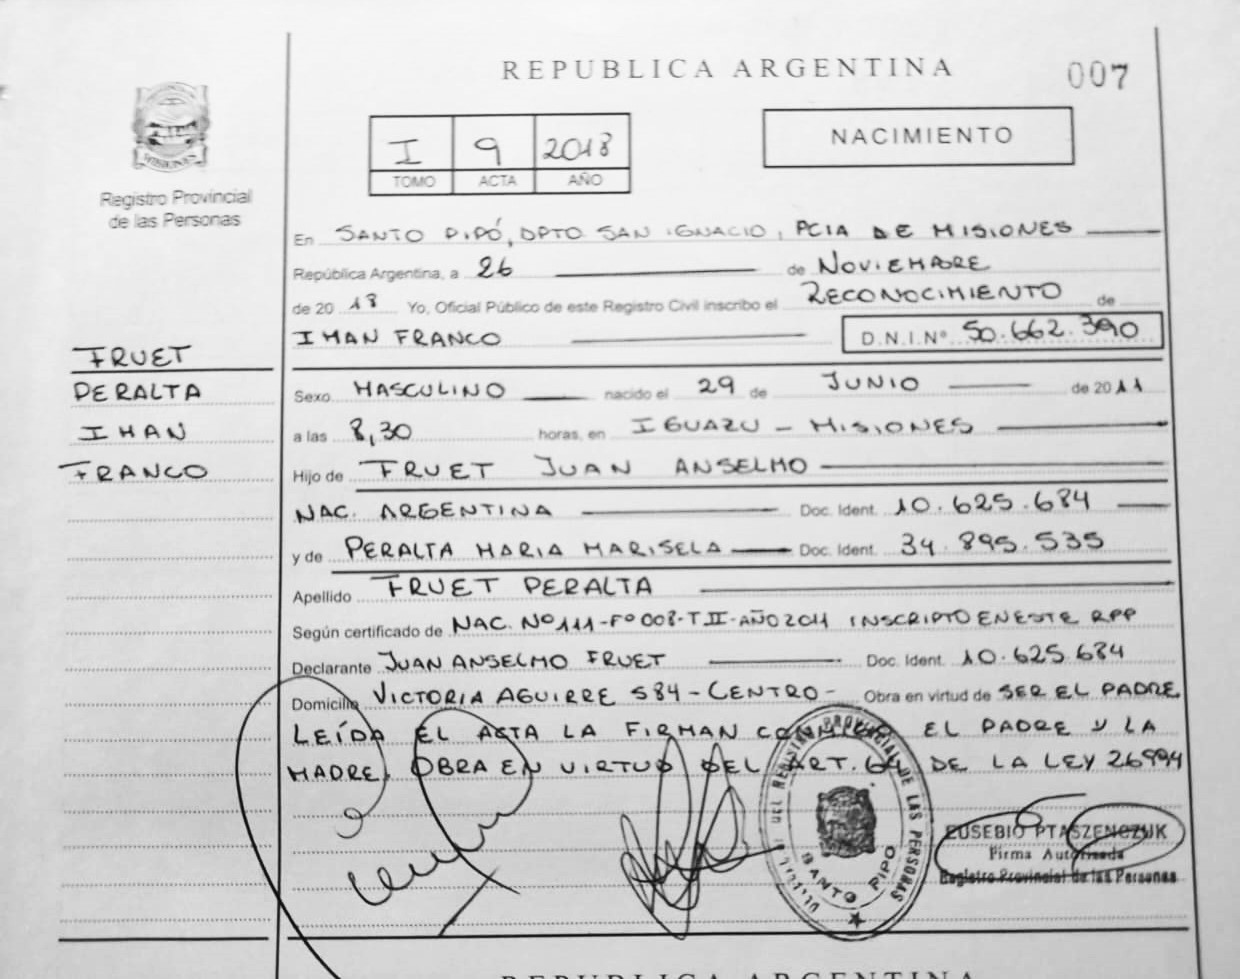 REPUBLICA ARGENTINA
007
MISIONES
Registro Provincial
de las Personas
I 9 2018
TOMO ACTA AÑO
NACIMIENTO
En SANTO PIPÓ, DPTO SAN IGNACIO, PCIA DE MISIONES
República Argentina, a 26 de NOVIEMBRE
de 2018 Yo, Oficial Público de este Registro Civil inscribo el RECONOCIMIENTO de
IHAN FRANCO D.N.I.Nº 50.662.390
FRUET
PERALTA
IHAN
FRANCO
Sexo MASCULINO nacido el 29 de JUNIO de 2011
a las 8,30 horas, en IGUAZU - MISIONES
Hijo de FRUET JUAN ANSELMO
NAC. ARGENTINA Doc. Ident. 10.625.684
y de PERALTA MARIA MARISELA Doc. Ident. 34.895.535
Apellido FRUET PERALTA
Según certificado de NAC. Nº111-Fº008-TII-AÑO2011 INSCRIPTO EN ESTE RPP
Declarante JUAN ANSELMO FRUET Doc. Ident. 10.625.684
Domicilio VICTORIA AGUIRRE 584 - CENTRO - Obra en virtud de SER EL PADRE
LEÍDA EL ACTA LA FIRMAN CONMIGO EL PADRE Y LA
MADRE. OBRA EN VIRTUD DEL ART. 64 DE LA LEY 26994
REGISTRO PROVINCIAL DE LAS PERSONAS
SANTO PIPO
EUSEBIO PTASZENCZUK
Firma Autorizada
Registro Provincial de las Personas
REPUBLICA ARGENTINA